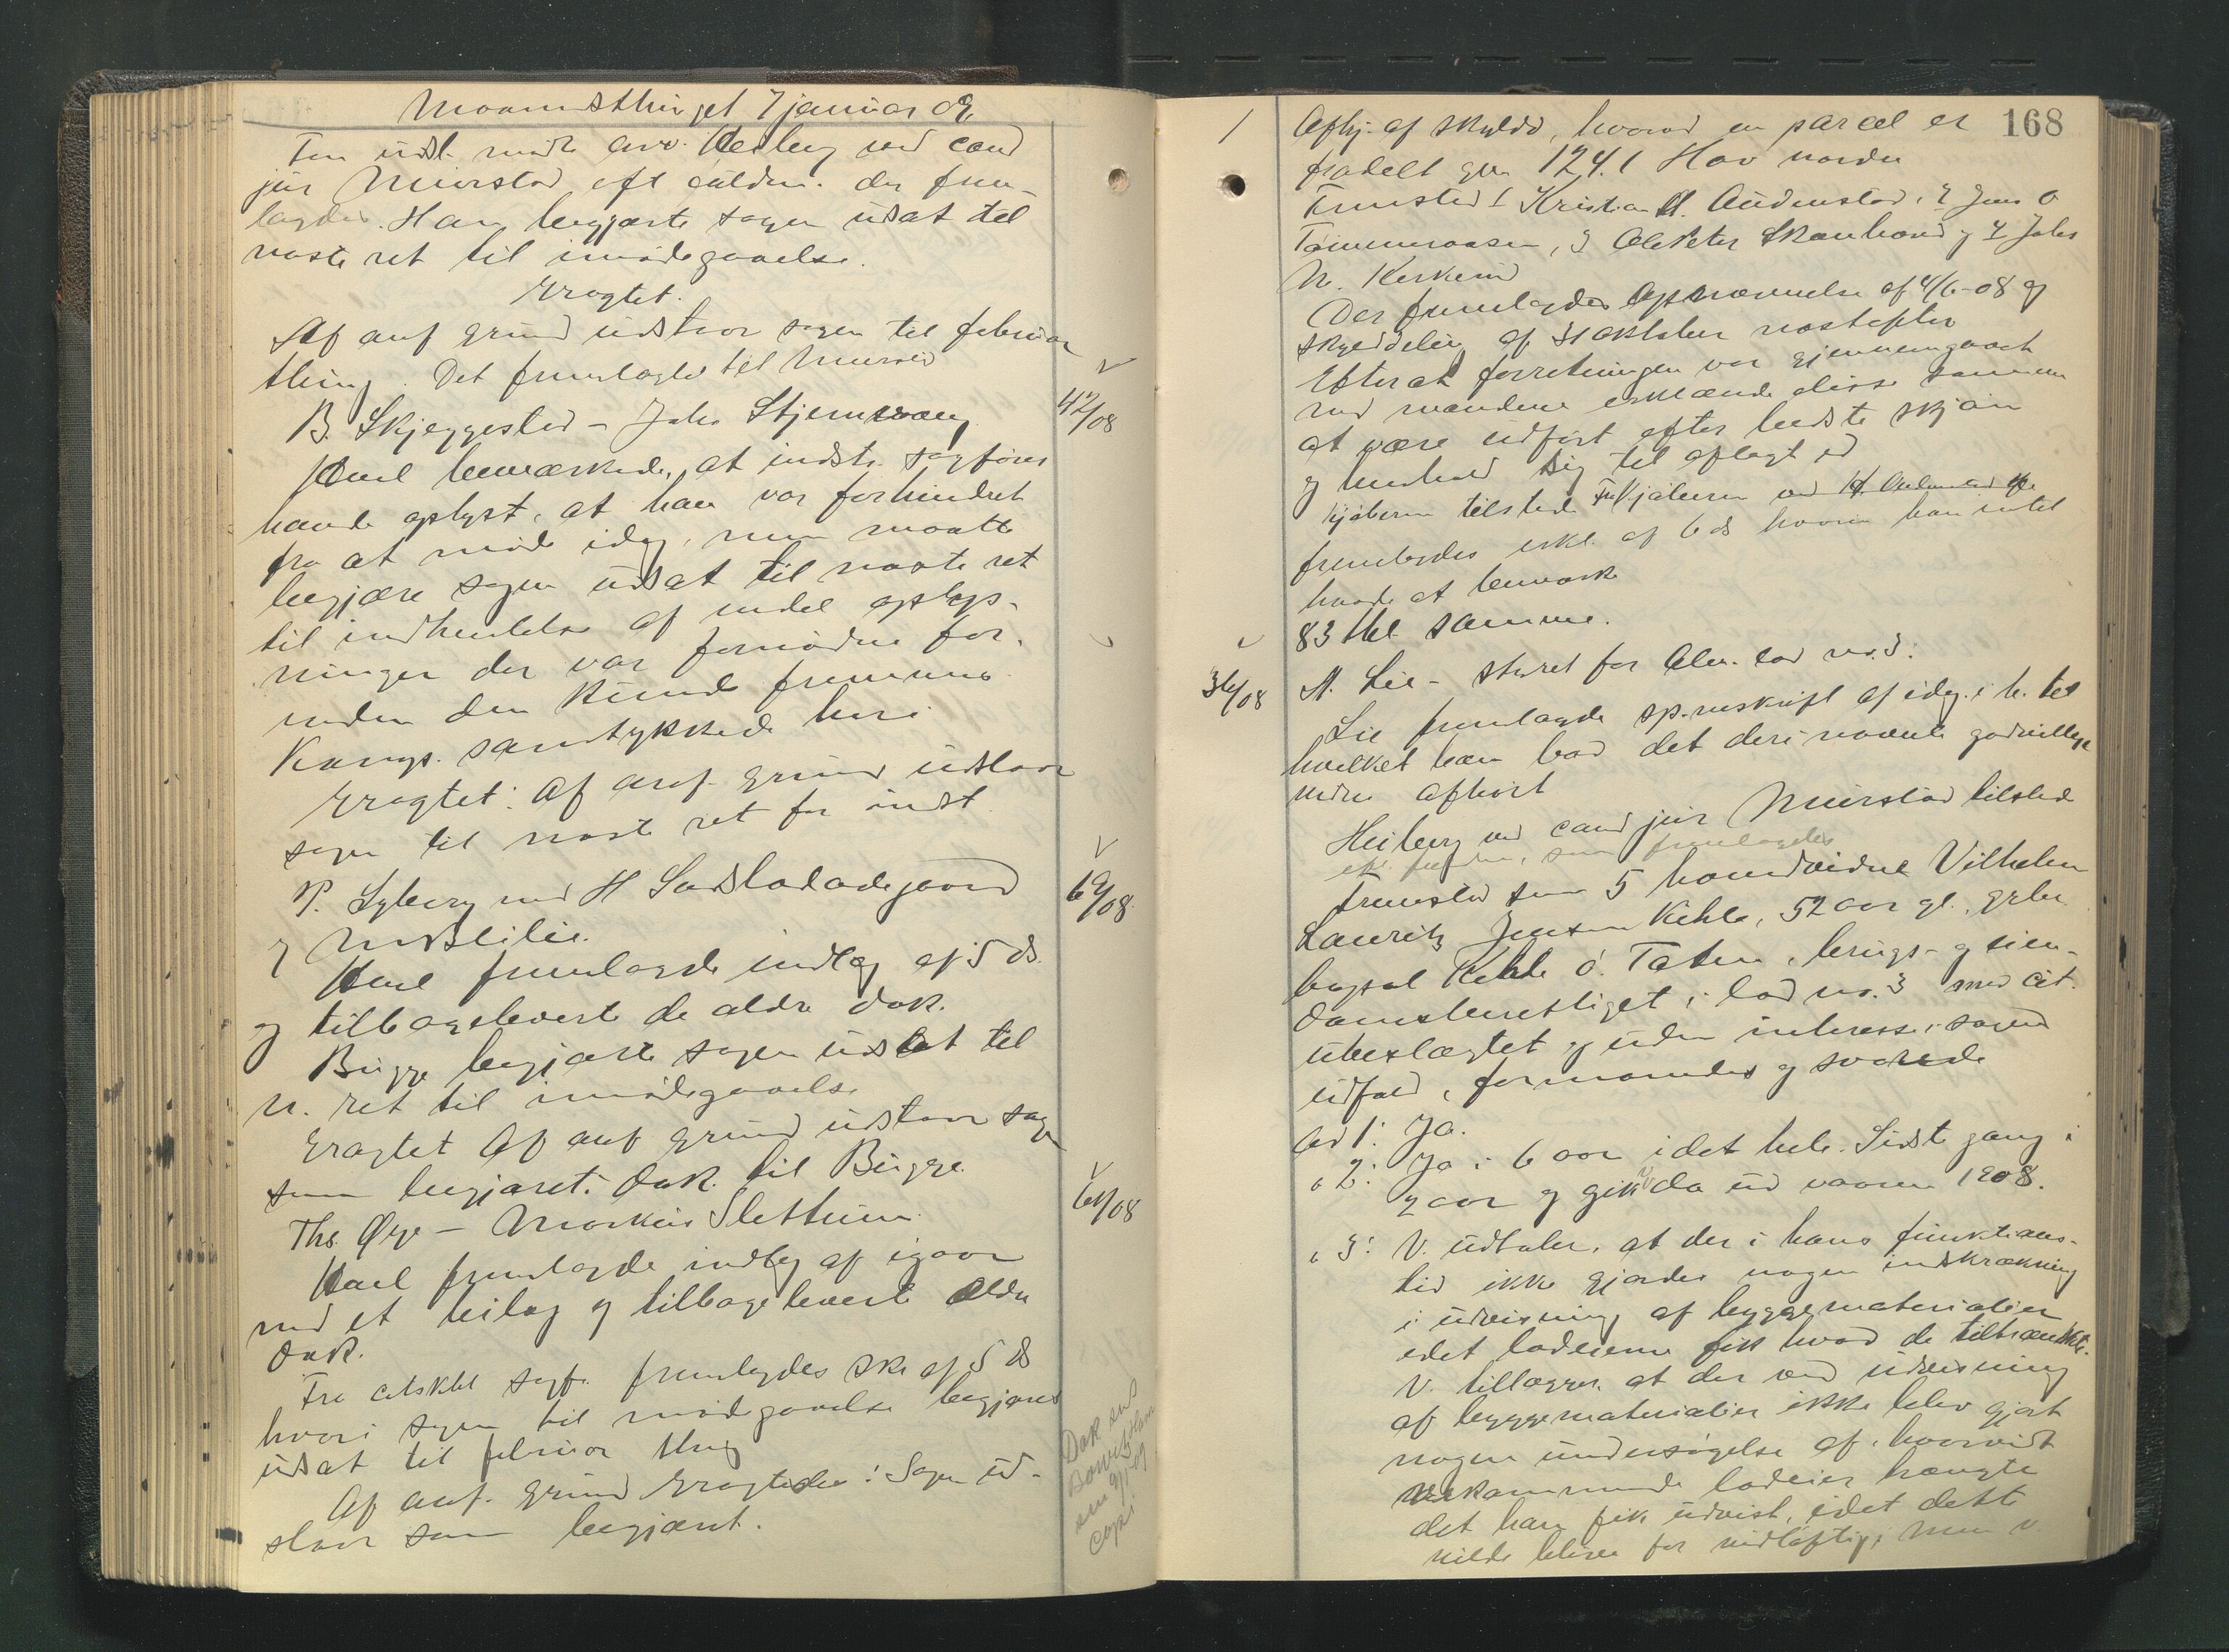 Maanedsthinget 7 januar 09.
For indst. mødte adv. Heiberg ved cand
jur Mürstad eft fuldm. der frem-
lagdes. Han begjærte sagen udsat til
næste ret til imødegaaelse.
Eragtet.
Af anf grund udstaar sagen til februar
thing. Det fremlagte til Murstad
B. Skjeggestad - Johs Stjernsvang
Hael bemærkede, at indst. sagfører
havde oplyst, at han var forhindret
fra at møde idag, men maatte
begjære sagen udsat til næste ret
til indhentelse af endel oplys-
ninger der var fornødne for-
inden den kunde fremmes.
Kontrap. samtykkede heri
Eragtet: Af anf. grund udstaar
sagen til næste ret for indst
P. Lyberg mod H Sadsladadegaard
og M Bleilie.
Hael fremlagde indlæg af 5 ds.
og tilbageleverte de ældre dok.
Bugge begjærte sagen udsat til
n. ret til imødegaaelse
Eragtet Af anf grund udstaar sagen
som begjæret. Dok. til Bugge.
Ths. Øye - Markus Slettum
Hael fremlagde indlæg af igaar
med et bilag og tilbageleverte ældre
Dok.
Fra citskts sagf. fremlagdes skr af 5 ds
hvori sagen til imødegaaelse begjæres
udsat til februar thing
Af anf. grund Eragtedes: Sagen ud-
staar som begjæret.
42/08
69/08
61/08
Dok
sen 9/1-09
Copi
168
1
Afhj. af skyldd, hvorved en parcel er
fradelt gn 124.1 Hov nordre
Fremstod 1 Kristian A. Audenstad, 2 Jens O
Tømmeraasen, 3 Ole Peter Skanhaug og 4 Johs
N. Kirkerud
Der fremlagdes Opnævnelse af 4/6-08 og
skylddeling af 31 oktober næstefter
Efterat forretningen var gjennemgaaet
med mændene erklærede disse samme
at være udført efter bedste skjøn
og henhold sig til aflagt ed
Kjøberen tilstede
fremlagdes erkl. af 6 ds hvori han intet
havde at bemærke
83 thl. samme.
36/08
A. Lie - styret for Alm. lod nr. 3.
Lie fremlagde sp.meskrift af idag i h. til
hvilket han bad det deri nævnte godvillige
vidne afhørt
Heiberg ved cand jur Mürstad tilstede
eft. fuldm., som fremlagdes
Fremstod som 5 hovedvidne Vilhelm
Lauritz Jensen Kihle, 52 aar gl., grbr.
bopæl Kihle ø. Toten, brugs- og eien-
domsberettiget i lod nr. 3 med cit.
ubeslægtet og uden interesse i sagens
udfald, formanedes og svarede
ad 1: Ja.
" 2: Ja i 6 aar idet hele. Sidste gang i
2 aar og gik v da ud vaaren 1908.
" 3: V. udtaler, at der i hans funktions-
tid ikke gjordes nogen indskrækning
i udvisning af byggematerialier
idet lodeierne fik hvad de tiltrænkte.
V. tillægger, at der ved udvisning
af byggematerialier ikke blev gjort
nogen undersøgelse af, hvorvidt
vedkommende lodeier trængte
det han fik udvist, idet dette
vilde blive for vidløftigt; men v.